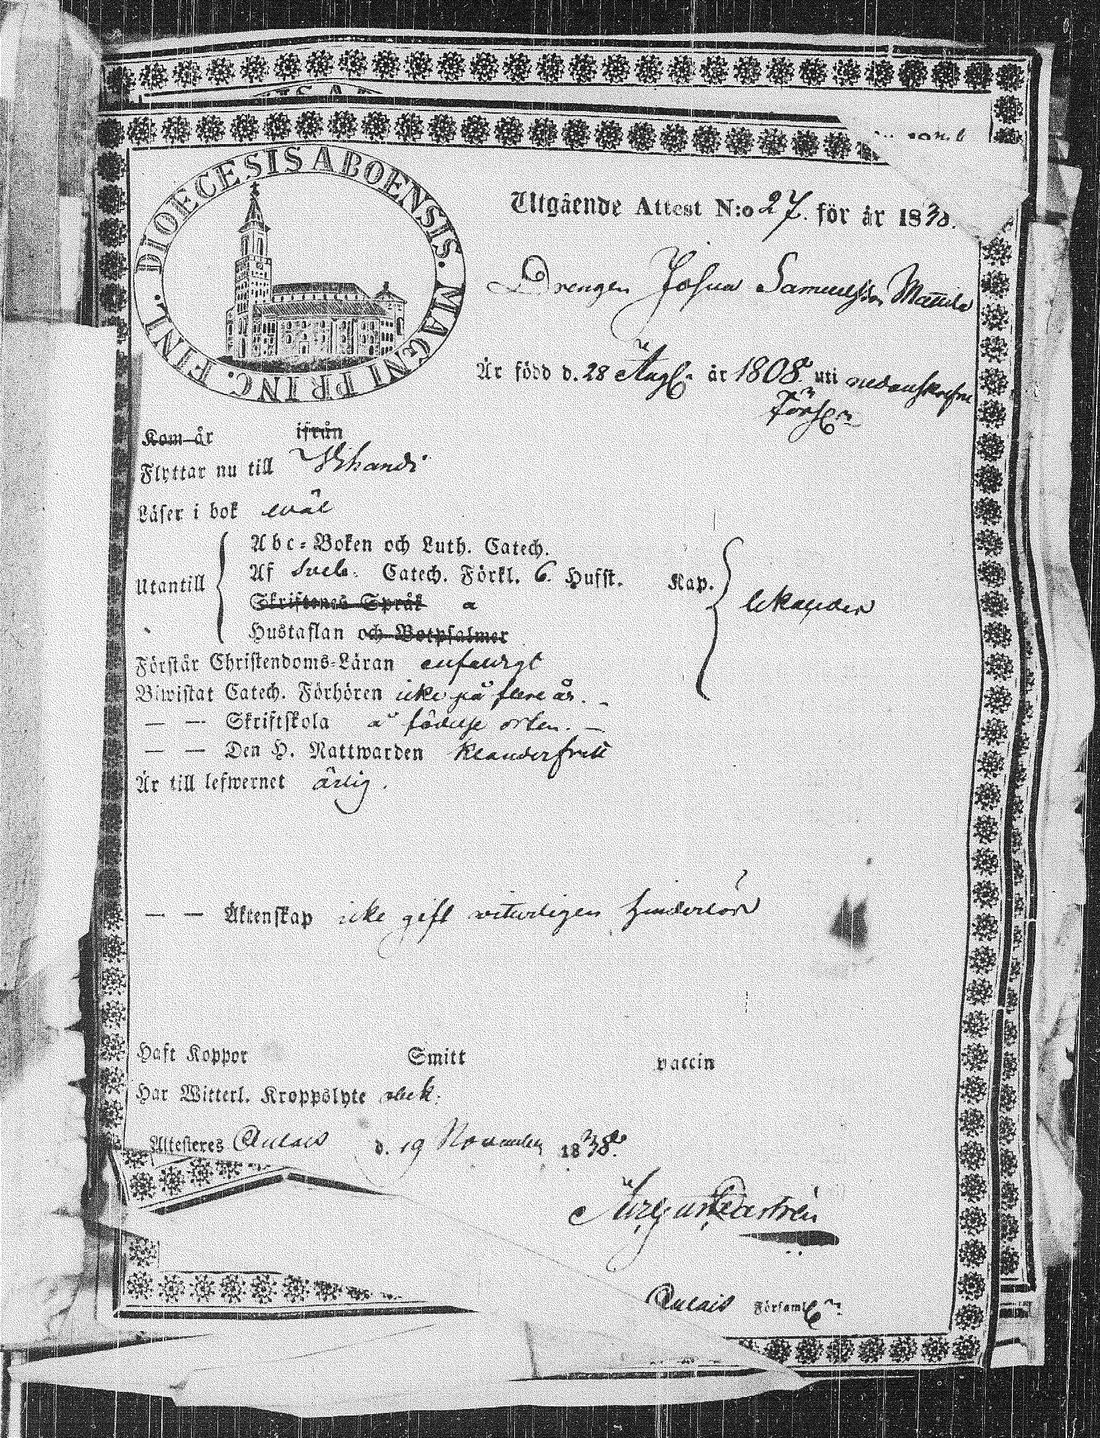 DIOECESIS ABOENSIS. MAGNI PRINC. FINL.
Utgående Attest N:o 27. för år 1838.
Drengen Josua Samuelsson Mattila
Är född d. 28 Aug. år 1808. uti nedanskrefne
Förs.
Kom år ifrån
Flyttar nu till Vihandi
Läser i bok wäl
Utantill
Abc-Boken och Luth. Catech.
Af Sveb. Catech. Förkl. 6. Hufst. Kap.
Skriftenes Språk
Hustaflan och Botpsalmer
Förstår Christendoms-Läran enfaldigt
Biwistat Catech. Förhören icke på flere år.
— — Skriftskola å födelse orten. —
— — Den H. Nattwarden klanderfritt
Är till lefwernet ärlig.
— — Äktenskap icke gift witterligen hinderlös
Haft Koppor Smitt vaccin
Har Witterl. Kroppslyte
Attesteres Aulais d. 19 November 1838.
Aulais Församl.